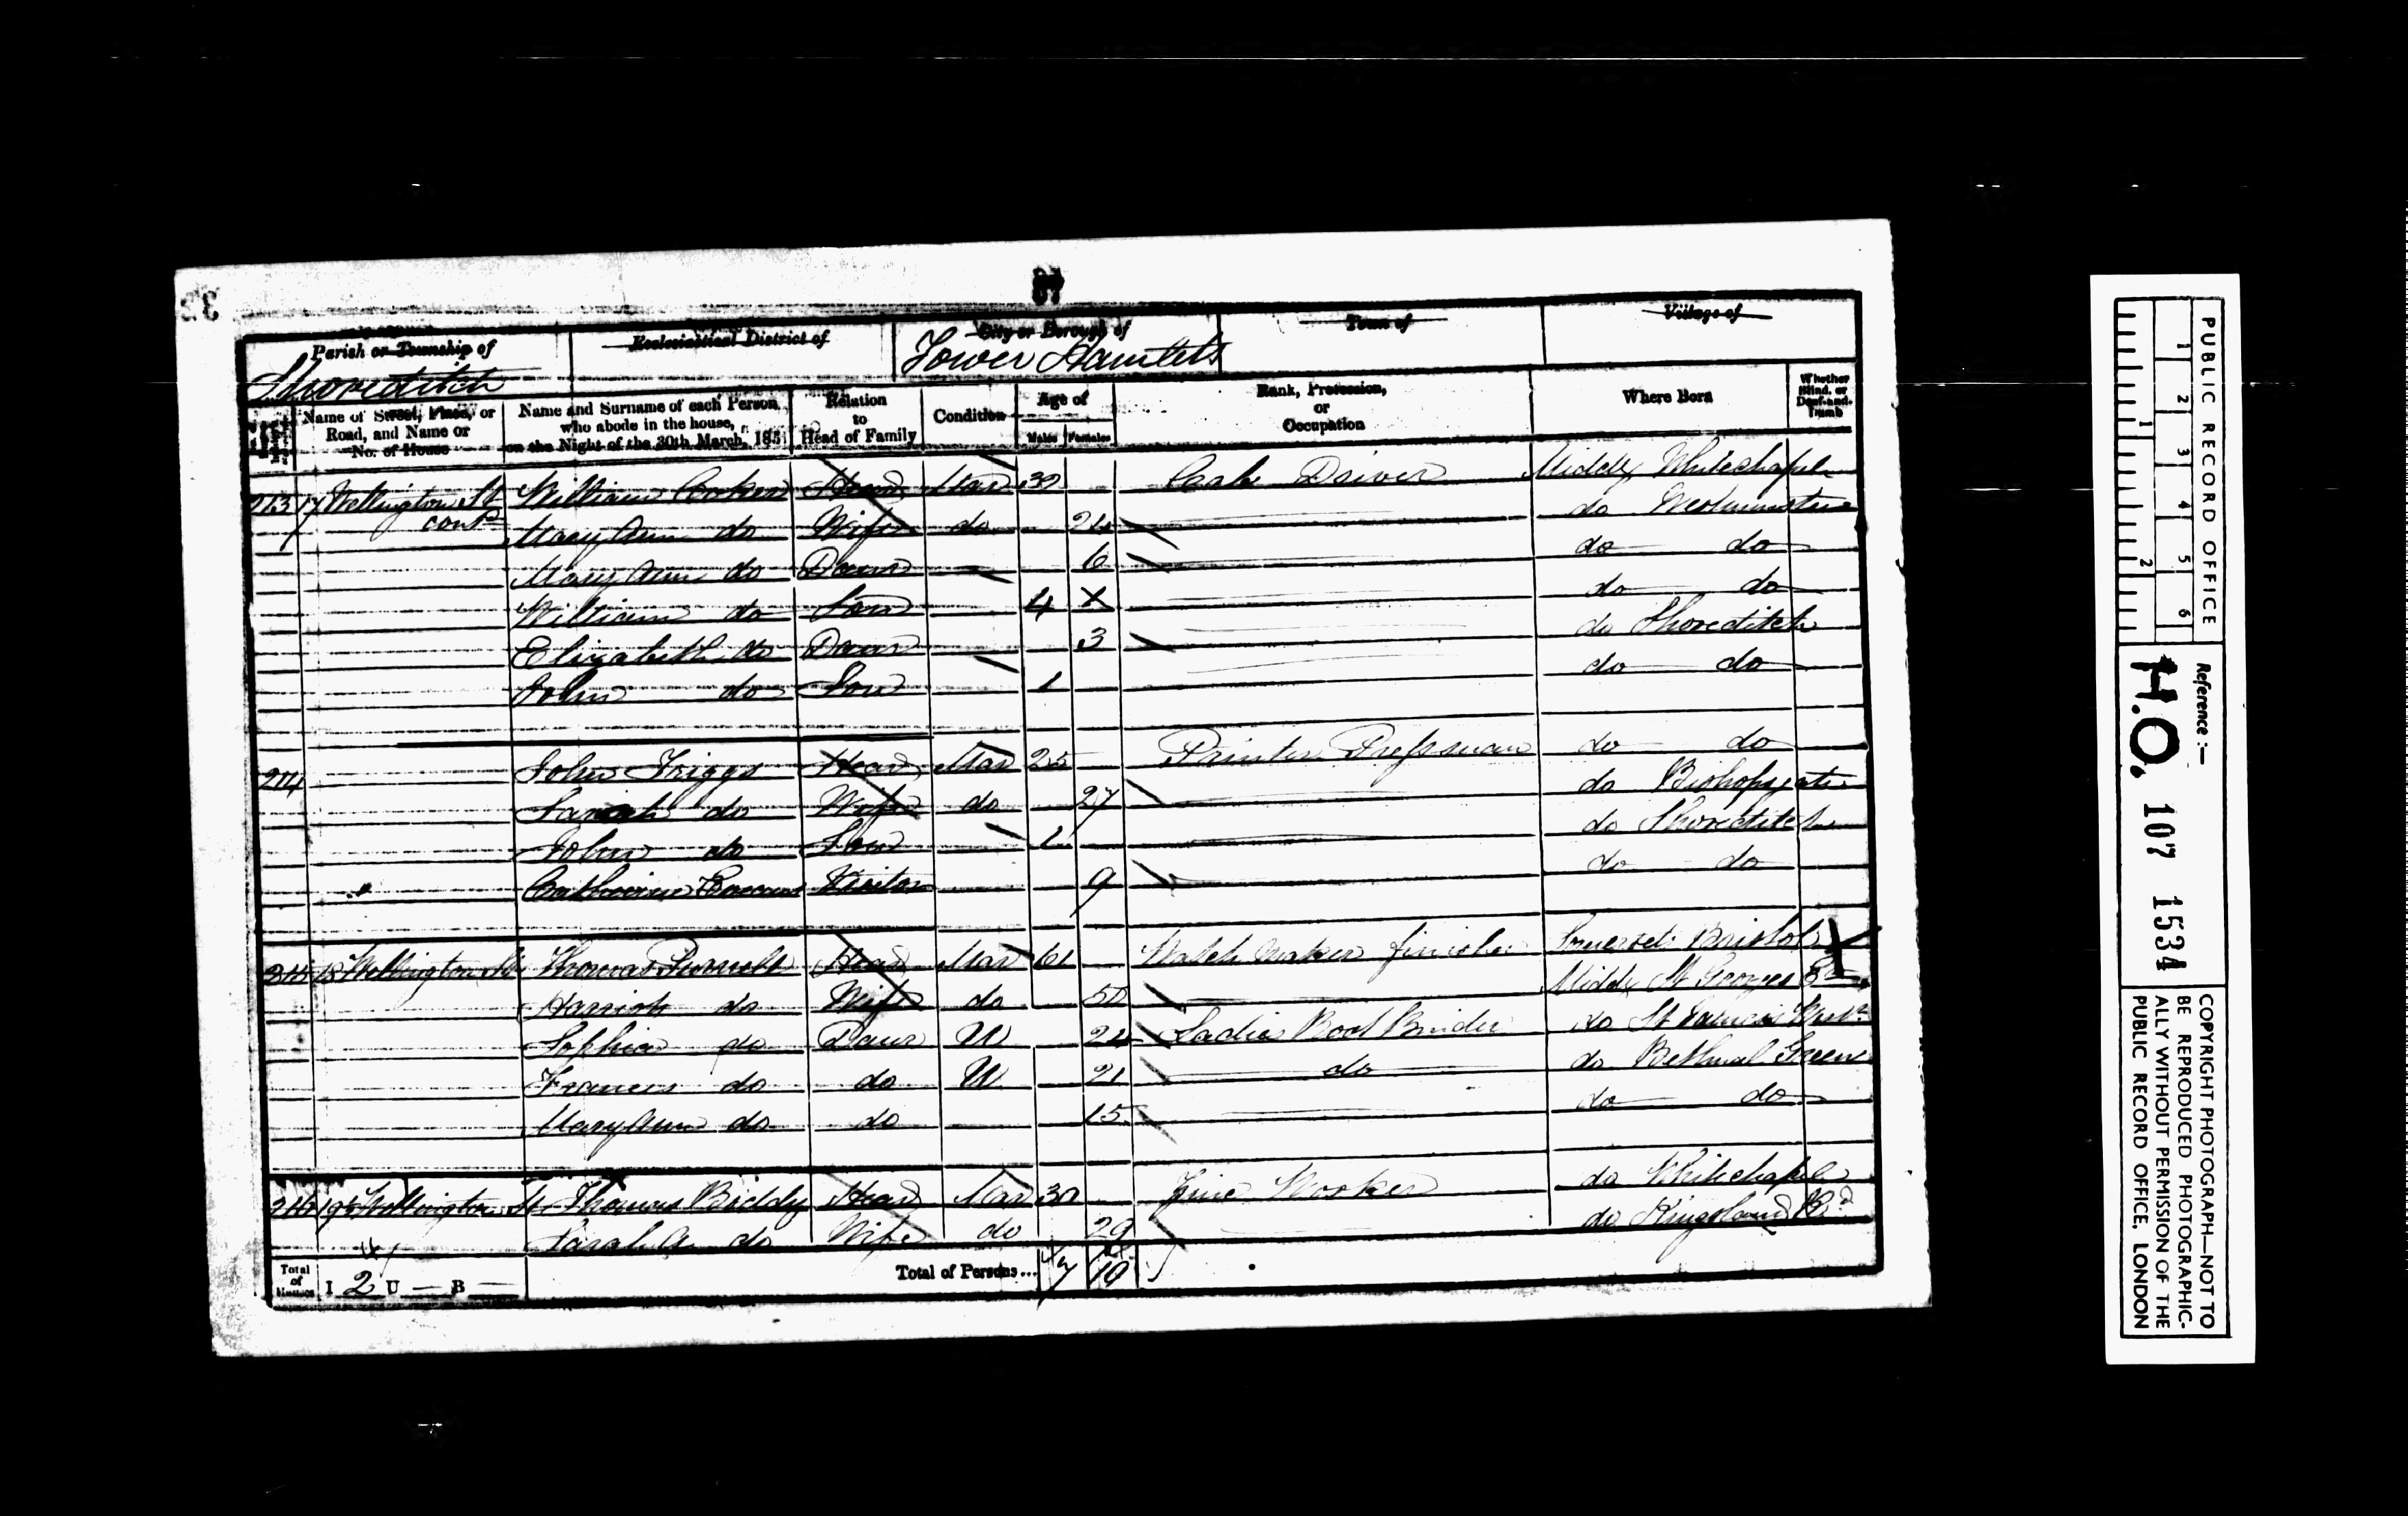 37
Parish or Township of Ecclesiastical District of City or Borough of Town of Village of
Shoreditch Tower Hamlets
Name of Street, Place, or Road, and Name or No. of House
Name and Surname of each Person who abode in the house, on the Night of the 30th March, 1851
Relation to Head of Family
Condition
Age of
Males Females
Rank, Profession, or Occupation
Where Born
Whether Blind, or Deaf-and-Dumb
213 17 Wellington St William Head Mar 39 Cab Driver Middx Whitechapel
cont Mary Ann do Wife do do Westminster
Mary Ann do Daur 6 do do
William do Son 4 X do do
Elizabeth do Daur 3 do Shoreditch
John do Son 1 do do
214 John Friggs Head Mar 25 Printer Pressman do do
Sarah do Wife do 27 do Bishopsgate
John do Son 1 do Shoreditch
" Catherine Visitor 9 do do
215 18 Wellington St Thomas Head Mar 61 Watch Maker finisher Somerset Bristol
Harriott do Wife do 50 Middx St Georges
Sophia do Daur U 24 Ladies Boot Binder do St
Frances do do U 21 do do Bethnal Green
Mary Ann do do 15 do do
216 19 Wellington St Thomas Biddy Head Mar 30 Worker do Whitechapel
Sarah A do Wife do 29 do Kingsland Rd
Total of Houses I 2 U — B — Total of Persons... 7 10
PUBLIC RECORD OFFICE
1 2 3 4 5 6
1 2
Reference :—
H.O. 107 1534
COPYRIGHT PHOTOGRAPH—NOT TO
BE REPRODUCED PHOTOGRAPHIC-
ALLY WITHOUT PERMISSION OF THE
PUBLIC RECORD OFFICE, LONDON